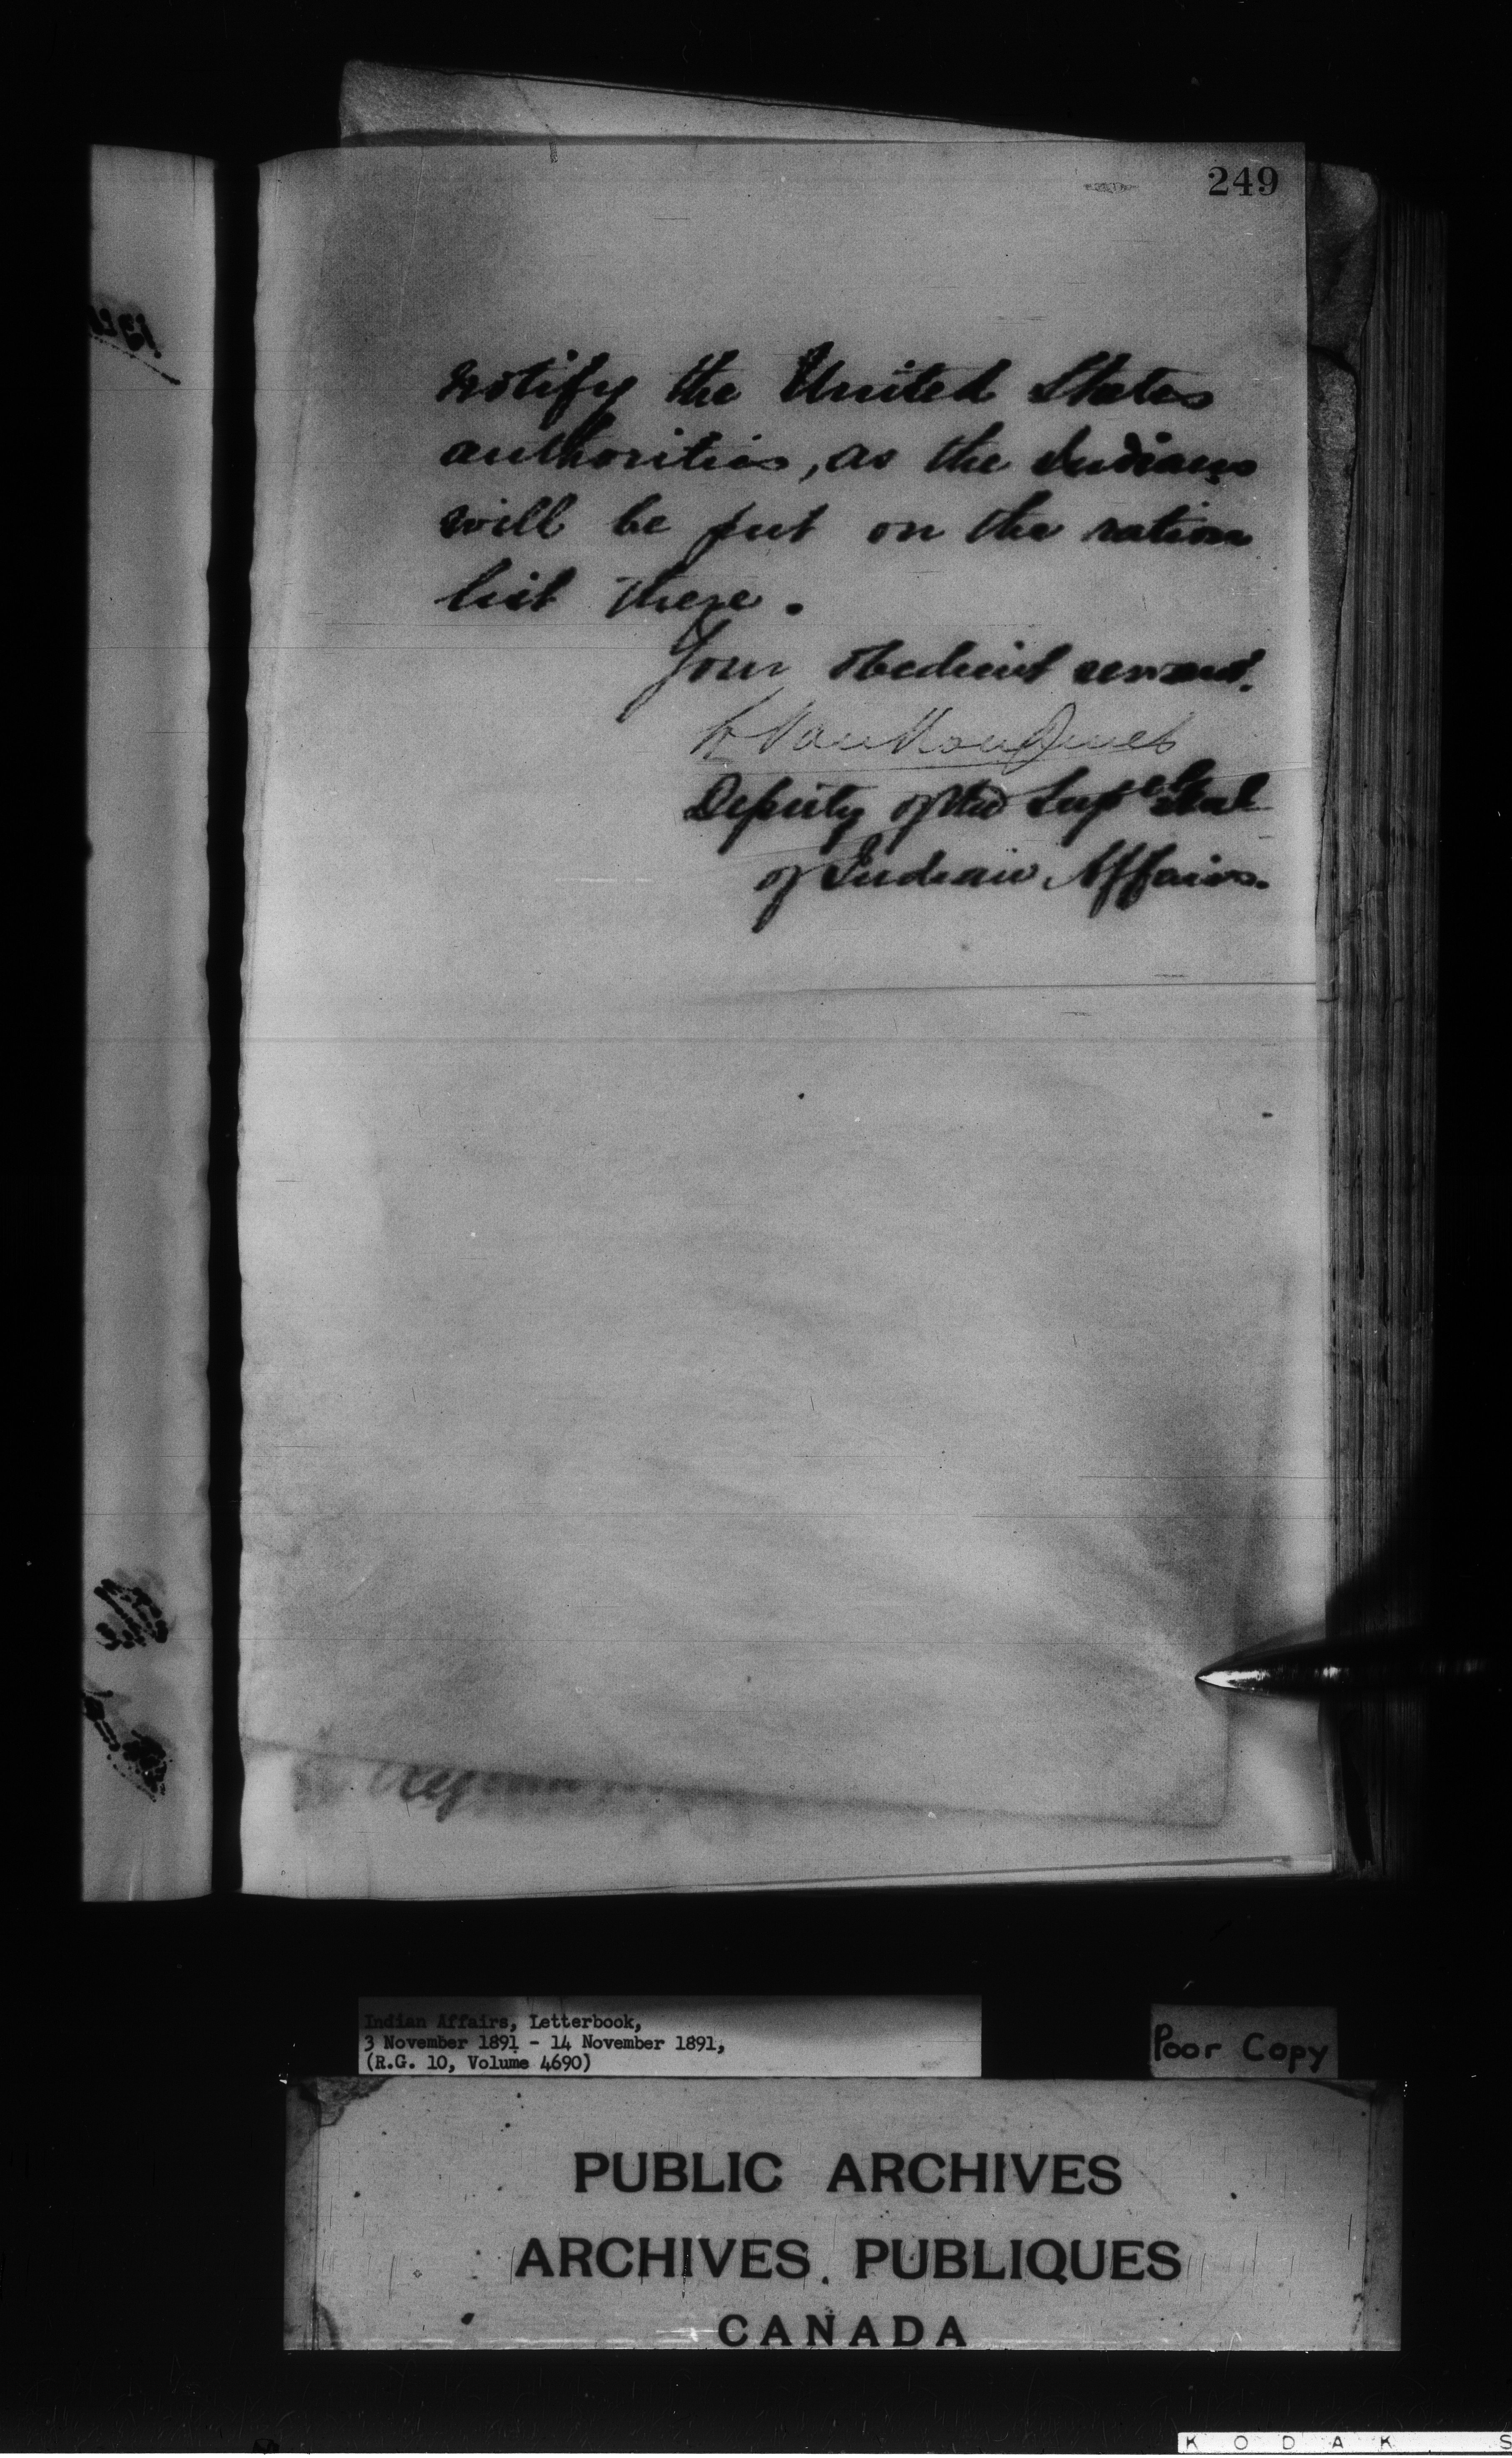 249
notify the United States
authorities, as the Indians
will be put on the ration
list there.
Your obedient servant.
L Vankoughnet
Deputy of the Sup
of Indian Affairs.
Indian Affairs, Letterbook,
3 November 1891 - 14 November 1891,
(R.G. 10, Volume 4690)
Poor Copy
PUBLIC ARCHIVES
ARCHIVES PUBLIQUES
CANADA
KODAK S